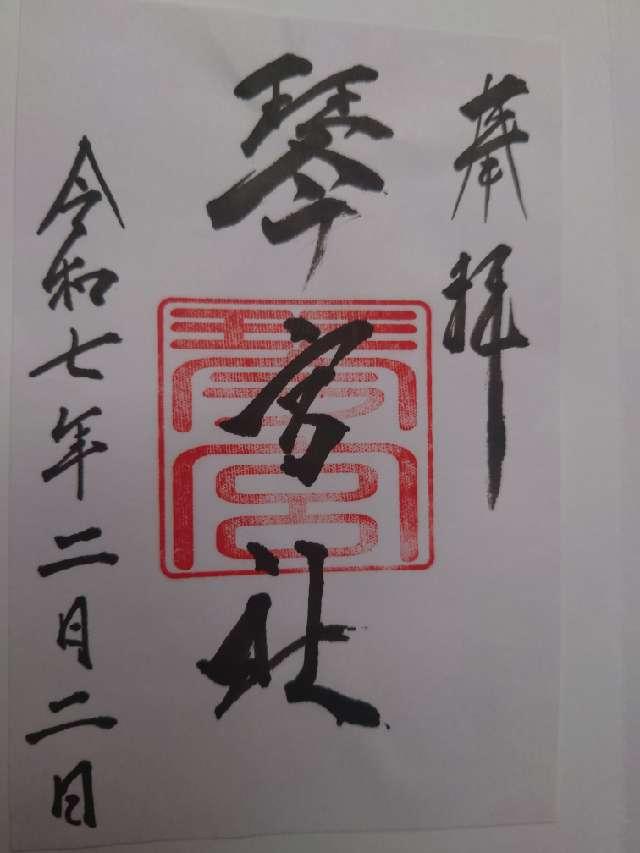 奉拝
琴宮社
琴宮
令和七年二月二日